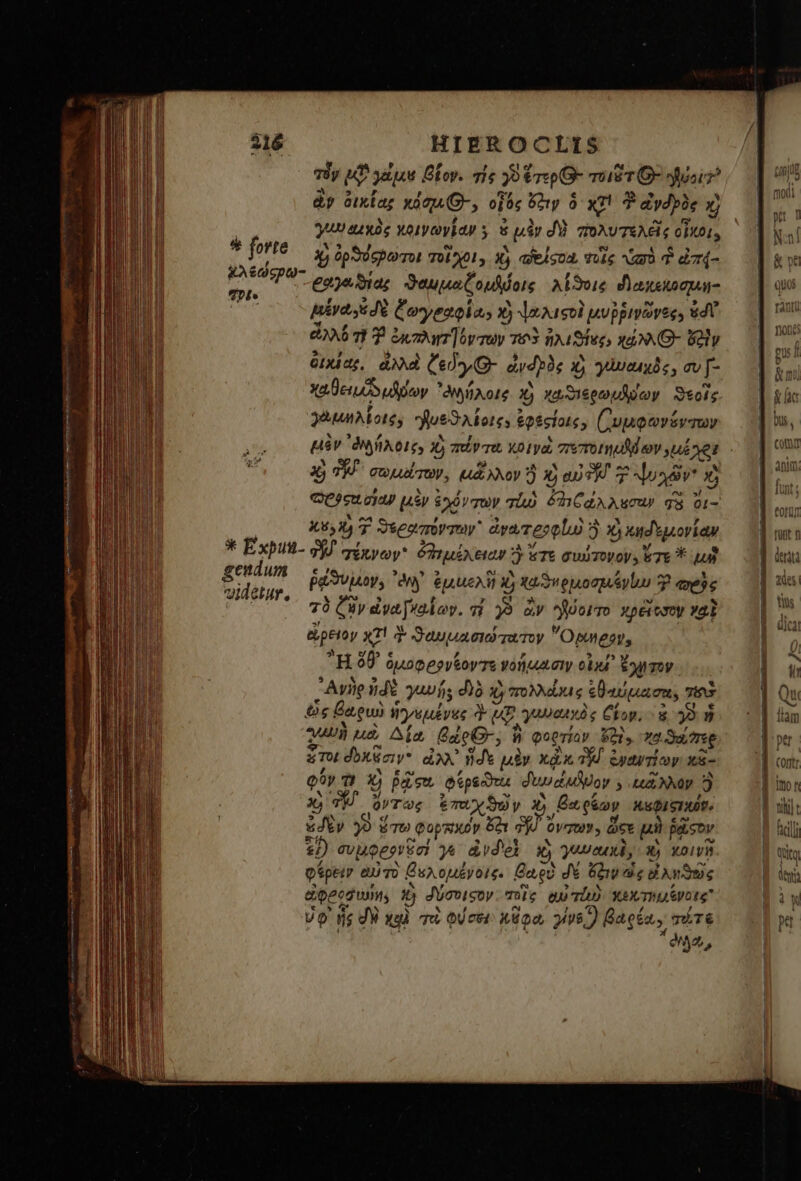 316 HIEROCLIS
τὸν μετὰ γάμου βίον. τίς γὰρ ἕτερος τοιοῦτος γένοιτ'
ἂν οἰκίας κόσμος, οἷός ἐστιν ὁ κατ' τὴν ἀνδρὸς καὶ
γυναικὸς κοινωνίαν; οὐ μὲν δὴ πολυτελεῖς οἶκοι,
* forte καὶ ὀρθόστρωτοι τοῖχοι, καὶ περίστοα τοῖς ὑπὸ τῆς ἀπει-
κλεόστρω- ραγαθίας θαυμαζομένοις λίθοις διακεκοσμη-
τοι. μένα, οὐδὲ ζωγραφία, καὶ ψαλιστοὶ μυῤῥινῶνες, οὐδ'
ἄλλό τι τῶν ἐκπληττόντων τοὺς ἠλιθίους, κάλλος ἐστὶν
οἰκίας. ἀλλὰ ζεῦγος ἀνδρὸς καὶ γυναικὸς, συγ-
καθειμαρμένων ἀλλήλοις καὶ καθιερωμένων θεοῖς
γαμηλίοις, γενεθλίοις, ἐφεστίοις, συμφωνούντων
μὲν ἀλλήλοις, καὶ πάντα κοινὰ πεποιημένων, μέχρι
καὶ τῶν σωμάτων, μᾶλλον δὲ καὶ αὐτῶν τῶν ψυχῶν· καὶ
προστασίαν μὲν ἐχόντων τὴν ἐπιβάλλουσαν τοῦ οἴ-
κου, καὶ τῶν θεραπόντων· ἀνατροφὴν δὲ καὶ κηδεμονίαν
* Expun- τῶν τέκνων· ἐπιμέλειαν δὲ οὔτε σύντονον, οὔτε * μὴ
gendum ῥάθυμον, ἀλλ' ἐμμελῆ καὶ καθηρμοσμένην τῶν πρὸς
uidetur. τὸ ζῆν ἀναγκαίων. τί γὰρ ἂν γένοιτο κρεῖττον καὶ
ἄρειον κατ' τὸν θαυμασιώτατον Ὅμηρον,
Ἢ ὅθ' ὁμοφρονέοντε νοήμασιν οἶκον ἔχητον
Ἀνὴρ ἠδὲ γυνή; διὸ καὶ πολλάκις ἐθαύμασα, τοὺς
ὡς βαρὺν ἡγουμένους τὸν μετὰ γυναικὸς βίον. οὐ γὰρ ἡ
γυνὴ μὰ Δία βάρος, ἢ φορτίον ἐστὶ, καθάπερ
οὗτοι δοκοῦσιν· ἀλλ' ἥδε μὲν κἀκ τῶν ἐναντίων κοῦ-
φόν τι καὶ ῥᾷστα φέρεσθαι δυνάμενον, μᾶλλον δὲ
καὶ τῶν ὄντως ἐπαχθῶν καὶ βαρέων κουφιστικόν.
οὐδὲν γὰρ οὕτω φορτικόν ἐστι τῶν ὄντων, ὥστε μὴ ῥᾷστον
εἶναι συμφρονοῦσί γε ἀνδρὶ καὶ γυναικὶ, καὶ κοινῇ
φέρειν αὐτὸ βουλομένοις. βαρὺ δέ ἐστιν ὡς ἀληθῶς
ἀφροσύνη, καὶ δύσοιστον τοῖς αὐτὴν κεκτημένοις·
ὑφ' ἧς δὴ καὶ τὰ φύσει κοῦφα γίνεται βαρέα, τά τε
ἄλλα,